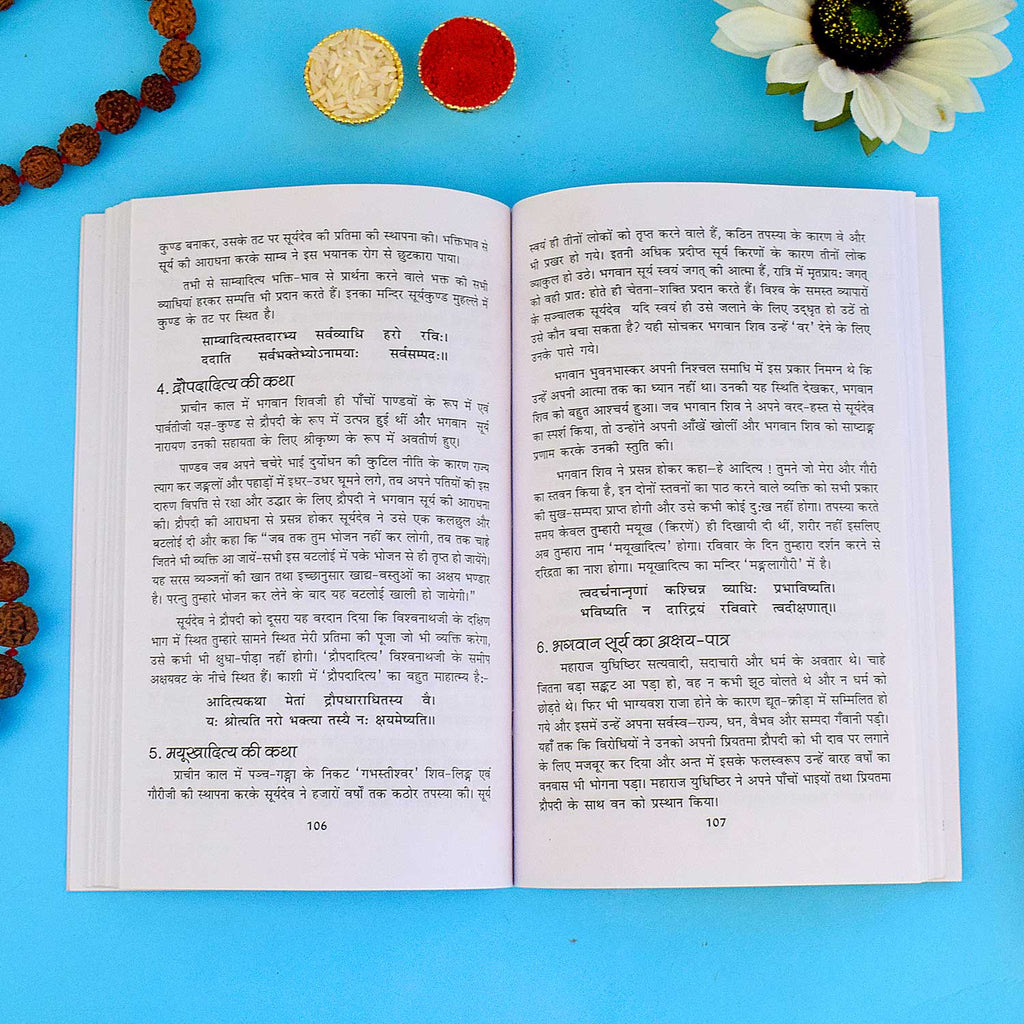 कुण्ड बनाकर, उसके तट पर सूर्यदेव की प्रतिमा की स्थापना की। भक्तिभाव से
सूर्य की आराधना करके साम्ब ने इस भयानक रोग से छुटकारा पाया।
तभी से साम्बादित्य भक्ति-भाव से प्रार्थना करने वाले भक्त की सभी
व्याधियां हरकर सम्पत्ति भी प्रदान करते हैं। इनका मन्दिर सूर्यकुण्ड मुहल्ले में
कुण्ड के तट पर स्थित है।
साम्बादित्यस्तदारभ्य सर्वव्याधि हरो रविः।
ददाति सर्वभक्तेभ्योऽनामयाः सर्वसम्पदः॥
4. द्रौपदादित्य की कथा
प्राचीन काल में भगवान शिवजी ही पाँचों पाण्डवों के रूप में एवं
पार्वतीजी यज्ञ-कुण्ड से द्रौपदी के रूप में उत्पन्न हुई थीं और भगवान सूर्य
नारायण उनकी सहायता के लिए श्रीकृष्ण के रूप में अवतीर्ण हुए।
पाण्डव जब अपने चचेरे भाई दुर्योधन की कुटिल नीति के कारण राज्य
त्याग कर जङ्गलों और पहाड़ों में इधर-उधर घूमने लगे, तब अपने पतियों की इस
दारुण विपत्ति से रक्षा और उद्धार के लिए द्रौपदी ने भगवान सूर्य की आराधना
की। द्रौपदी की आराधना से प्रसन्न होकर सूर्यदेव ने उसे एक कलछुल और
बटलोई दी और कहा कि “जब तक तुम भोजन नहीं कर लोगी, तब तक चाहे
जितने भी व्यक्ति आ जायें-सभी इस बटलोई में पके भोजन से ही तृप्त हो जायेंगे।
यह सरस व्यञ्जनों की खान तथा इच्छानुसार खाद्य-वस्तुओं का अक्षय भण्डार
है। परन्तु तुम्हारे भोजन कर लेने के बाद यह बटलोई खाली हो जायेगी।”
सूर्यदेव ने द्रौपदी को दूसरा यह वरदान दिया कि विश्वनाथजी के दक्षिण
भाग में स्थित तुम्हारे सामने स्थित मेरी प्रतिमा की पूजा जो भी व्यक्ति करेगा,
उसे कभी भी क्षुधा-पीड़ा नहीं होगी। ‘द्रौपदादित्य’ विश्वनाथजी के समीप
अक्षयवट के नीचे स्थित हैं। काशी में ‘द्रौपदादित्य’ का बहुत माहात्म्य है:-
आदित्यकथा मेतां द्रौपघाराधितस्य वै।
यः श्रोत्यति नरो भक्त्या तस्यै नः क्षयमेष्यति॥
5. मयूखादित्य की कथा
प्राचीन काल में पञ्च-गङ्गा के निकट ‘गभस्तीश्वर’ शिव-लिङ्ग एवं
गौरीजी की स्थापना करके सूर्यदेव ने हजारों वर्षों तक कठोर तपस्या की। सूर्य
106
स्वयं ही तीनों लोकों को तृप्त करने वाले हैं, कठिन तपस्या के कारण वे और
भी प्रखर हो गये। इतनी अधिक प्रदीप्त सूर्य किरणों के कारण तीनों लोक
व्याकुल हो उठे। भगवान सूर्य स्वयं जगत् की आत्मा हैं, रात्रि में मृतप्रायः जगत्
को वही प्रातः होते ही चेतना-शक्ति प्रदान करते हैं। विश्व के समस्त व्यापारों
के सञ्चालक सूर्यदेव यदि स्वयं ही उसे जलाने के लिए उद्धृत हो उठें तो
उसे कौन बचा सकता है? यही सोचकर भगवान शिव उन्हें ‘वर’ देने के लिए
उनके पासे गये।
भगवान भुवनभास्कर अपनी निश्चल समाधि में इस प्रकार निमग्न थे कि
उन्हें अपनी आत्मा तक का ध्यान नहीं था। उनकी यह स्थिति देखकर, भगवान
शिव को बहुत आश्चर्य हुआ। जब भगवान शिव ने अपने वरद-हस्त से सूर्यदेव
का स्पर्श किया, तो उन्होंने अपनी आँखें खोलीं और भगवान शिव को साष्टाङ्ग
प्रणाम करके उनकी स्तुति की।
भगवान शिव ने प्रसन्न होकर कहा—हे आदित्य ! तुमने जो मेरा और गौरी
का स्तवन किया है, इन दोनों स्तवनों का पाठ करने वाले व्यक्ति को सभी प्रकार
की सुख-सम्पदा प्राप्त होगी और उसे कभी कोई दुःख नहीं होगा। तपस्या करते
समय केवल तुम्हारी मयूख (किरणें) ही दिखायी दी थीं, शरीर नहीं इसलिए
अब तुम्हारा नाम ‘मयूखादित्य’ होगा। रविवार के दिन तुम्हारा दर्शन करने से
दरिद्रता का नाश होगा। मयूखादित्य का मन्दिर ‘मङ्गलागौरी’ में है।
त्वदर्चनान्नृणां कश्चिन्न व्याधिः प्रभाविष्यति।
भविष्यति न दारिद्रयं रविवारे त्वदीक्षणात्॥
6. भगवान सूर्य का अक्षय-पात्र
महाराज युधिष्ठिर सत्यवादी, सदाचारी और धर्म के अवतार थे। चाहे
जितना बड़ा सङ्कट आ पड़ा हो, वह न कभी झूठ बोलते थे और न धर्म को
छोड़ते थे। फिर भी भाग्यवश राजा होने के कारण द्यूत-क्रीड़ा में सम्मिलित हो
गये और इसमें उन्हें अपना सर्वस्व—राज्य, धन, वैभव और सम्पदा गँवानी पड़ी।
यहाँ तक कि विरोधियों ने उनको अपनी प्रियतमा द्रौपदी को भी दाव पर लगाने
के लिए मजबूर कर दिया और अन्त में इसके फलस्वरूप उन्हें बारह वर्षों का
वनवास भी भोगना पड़ा। महाराज युधिष्ठिर ने अपने पाँचों भाइयों तथा प्रियतमा
द्रौपदी के साथ वन को प्रस्थान किया।
107